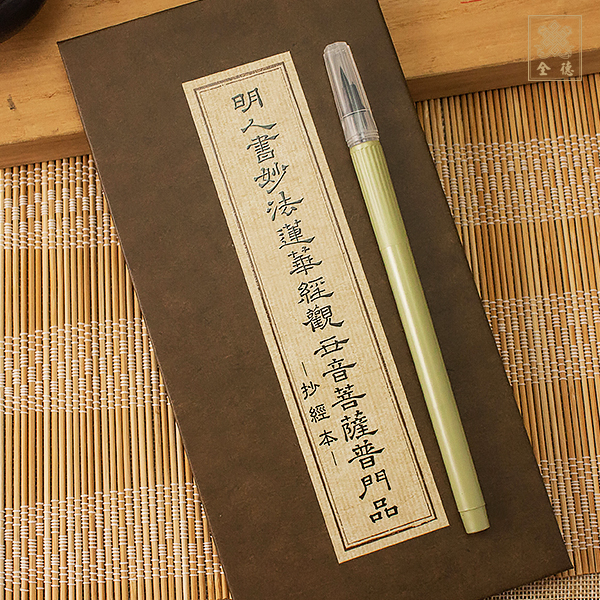 明人書妙法蓮華經觀世音菩薩普門品
－抄經本－
全德